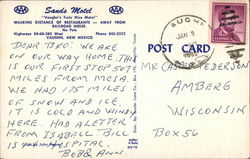 Sands Motel
"Vaughn's Truly Nice Motel"
WALKING DISTANCE OF RESTAURANTS — AWAY FROM
RAILROAD NOISE
No Pets
Highways 54-60-285 West
VAUGHN, NEW MEXICO
POST CARD
DEAR BRO. WE ARE
ON OUR WAY HOME. THIS
IS OUR FIRST STOP 507
MILES FROM MESA.
WE HAD 175 MILES
OF SNOW AND ICE
IT IS COLD AND WIND
HERE. HAD A LETTER
FROM ISABELL. BILL
IS IN HOSPITAL.
BOB & ANN.
MR PEDERSON
AMBERG
WISCONSIN
BOX 56